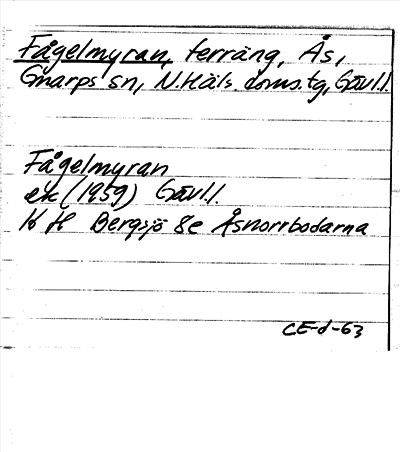 Fågelmyran, terräng, Ås,
Gnarps sn, N.Häls. doms.tg, Gävl.l.
Fågelmyran
ek (1959) Gävl.l.
K H Bergsjö 8e Åsnorrbodarna
CE-d-63